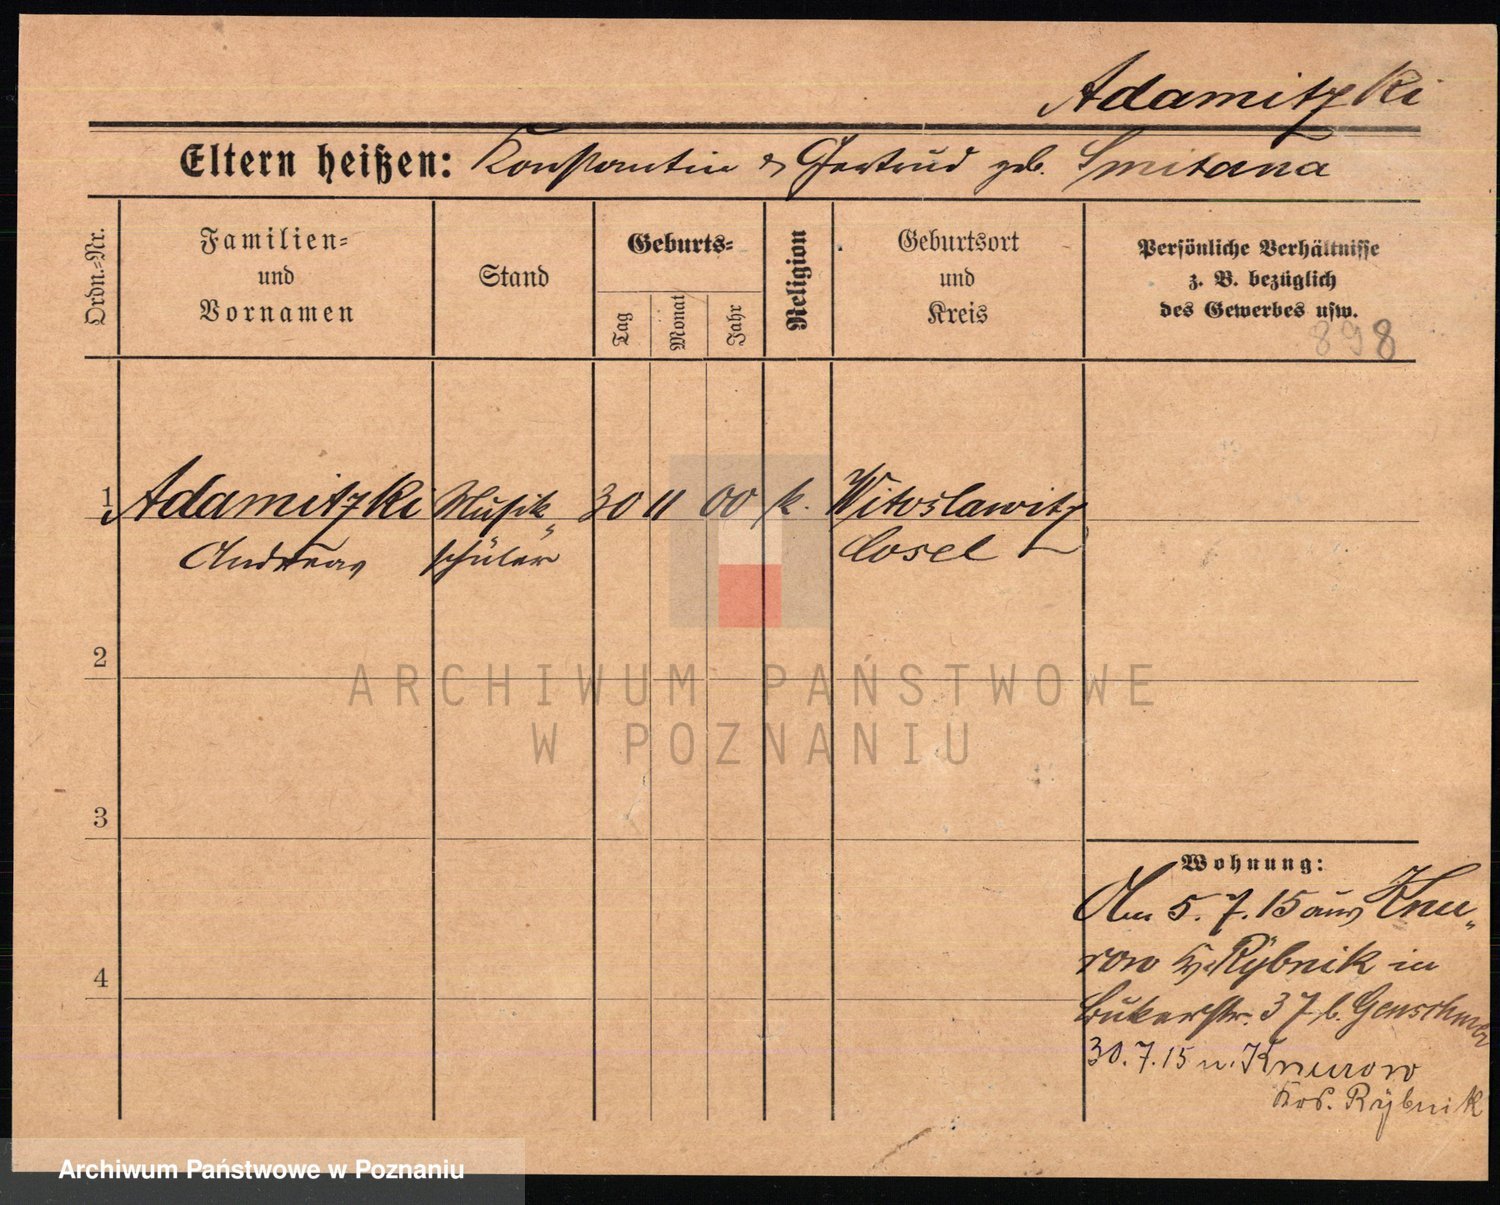 Adamitzki
Eltern heißen: Konstantin & Gertrud geb. Smitana
Ordn.-Nr.
Familien-
und
Vornamen
Stand
Geburts-
Tag
Monat
Jahr
Religion
Geburtsort
und
Kreis
Persönliche Verhältnisse
z. B. bezüglich
des Gewerbes usw.
898
1 Adamitzki Musik- 30 11 00 k. Witoslawitz
Andreas schüler Cosel
2
ARCHIWUM PAŃSTWOWE
W POZNANIU
3
Wohnung:
Am 5. 7. 15 aus Knu-
row Kr. Rybnik in
Bukerstr. 37 b. Genschmer
4
30. 7. 15 n. Knurow
Krs. Rybnik
Archiwum Państwowe w Poznaniu